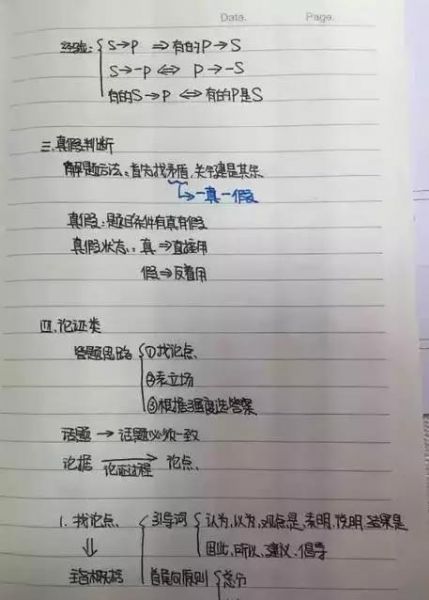 Date. Page.
经验: S→P ⇒有的P→S
S→-P ⇔ P→-S
有的S→P ⇔ 有的P是S
三.真假判断
解题方法: 首先找矛盾,关键是其余
→一真一假
真假: 题目条件有真有假
真假状态: 真⇒直接用
假⇒反着用
四.论证类
答题思路 ①找论点
②看立场
③根据强度选答案
话题 → 话题必须一致
论据 论证过程 论点
1. 找论点 引导词 认为,以为,观点是,表明,说明,结果是
⇓ 因此,所以,建议,倡导
主旨概括 首尾句原则 总分